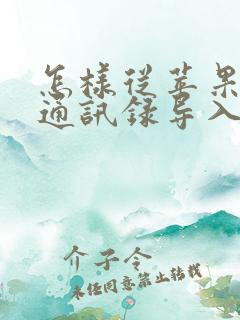 怎様從苹果
通訊録导入
介子令
未经同意禁止转载